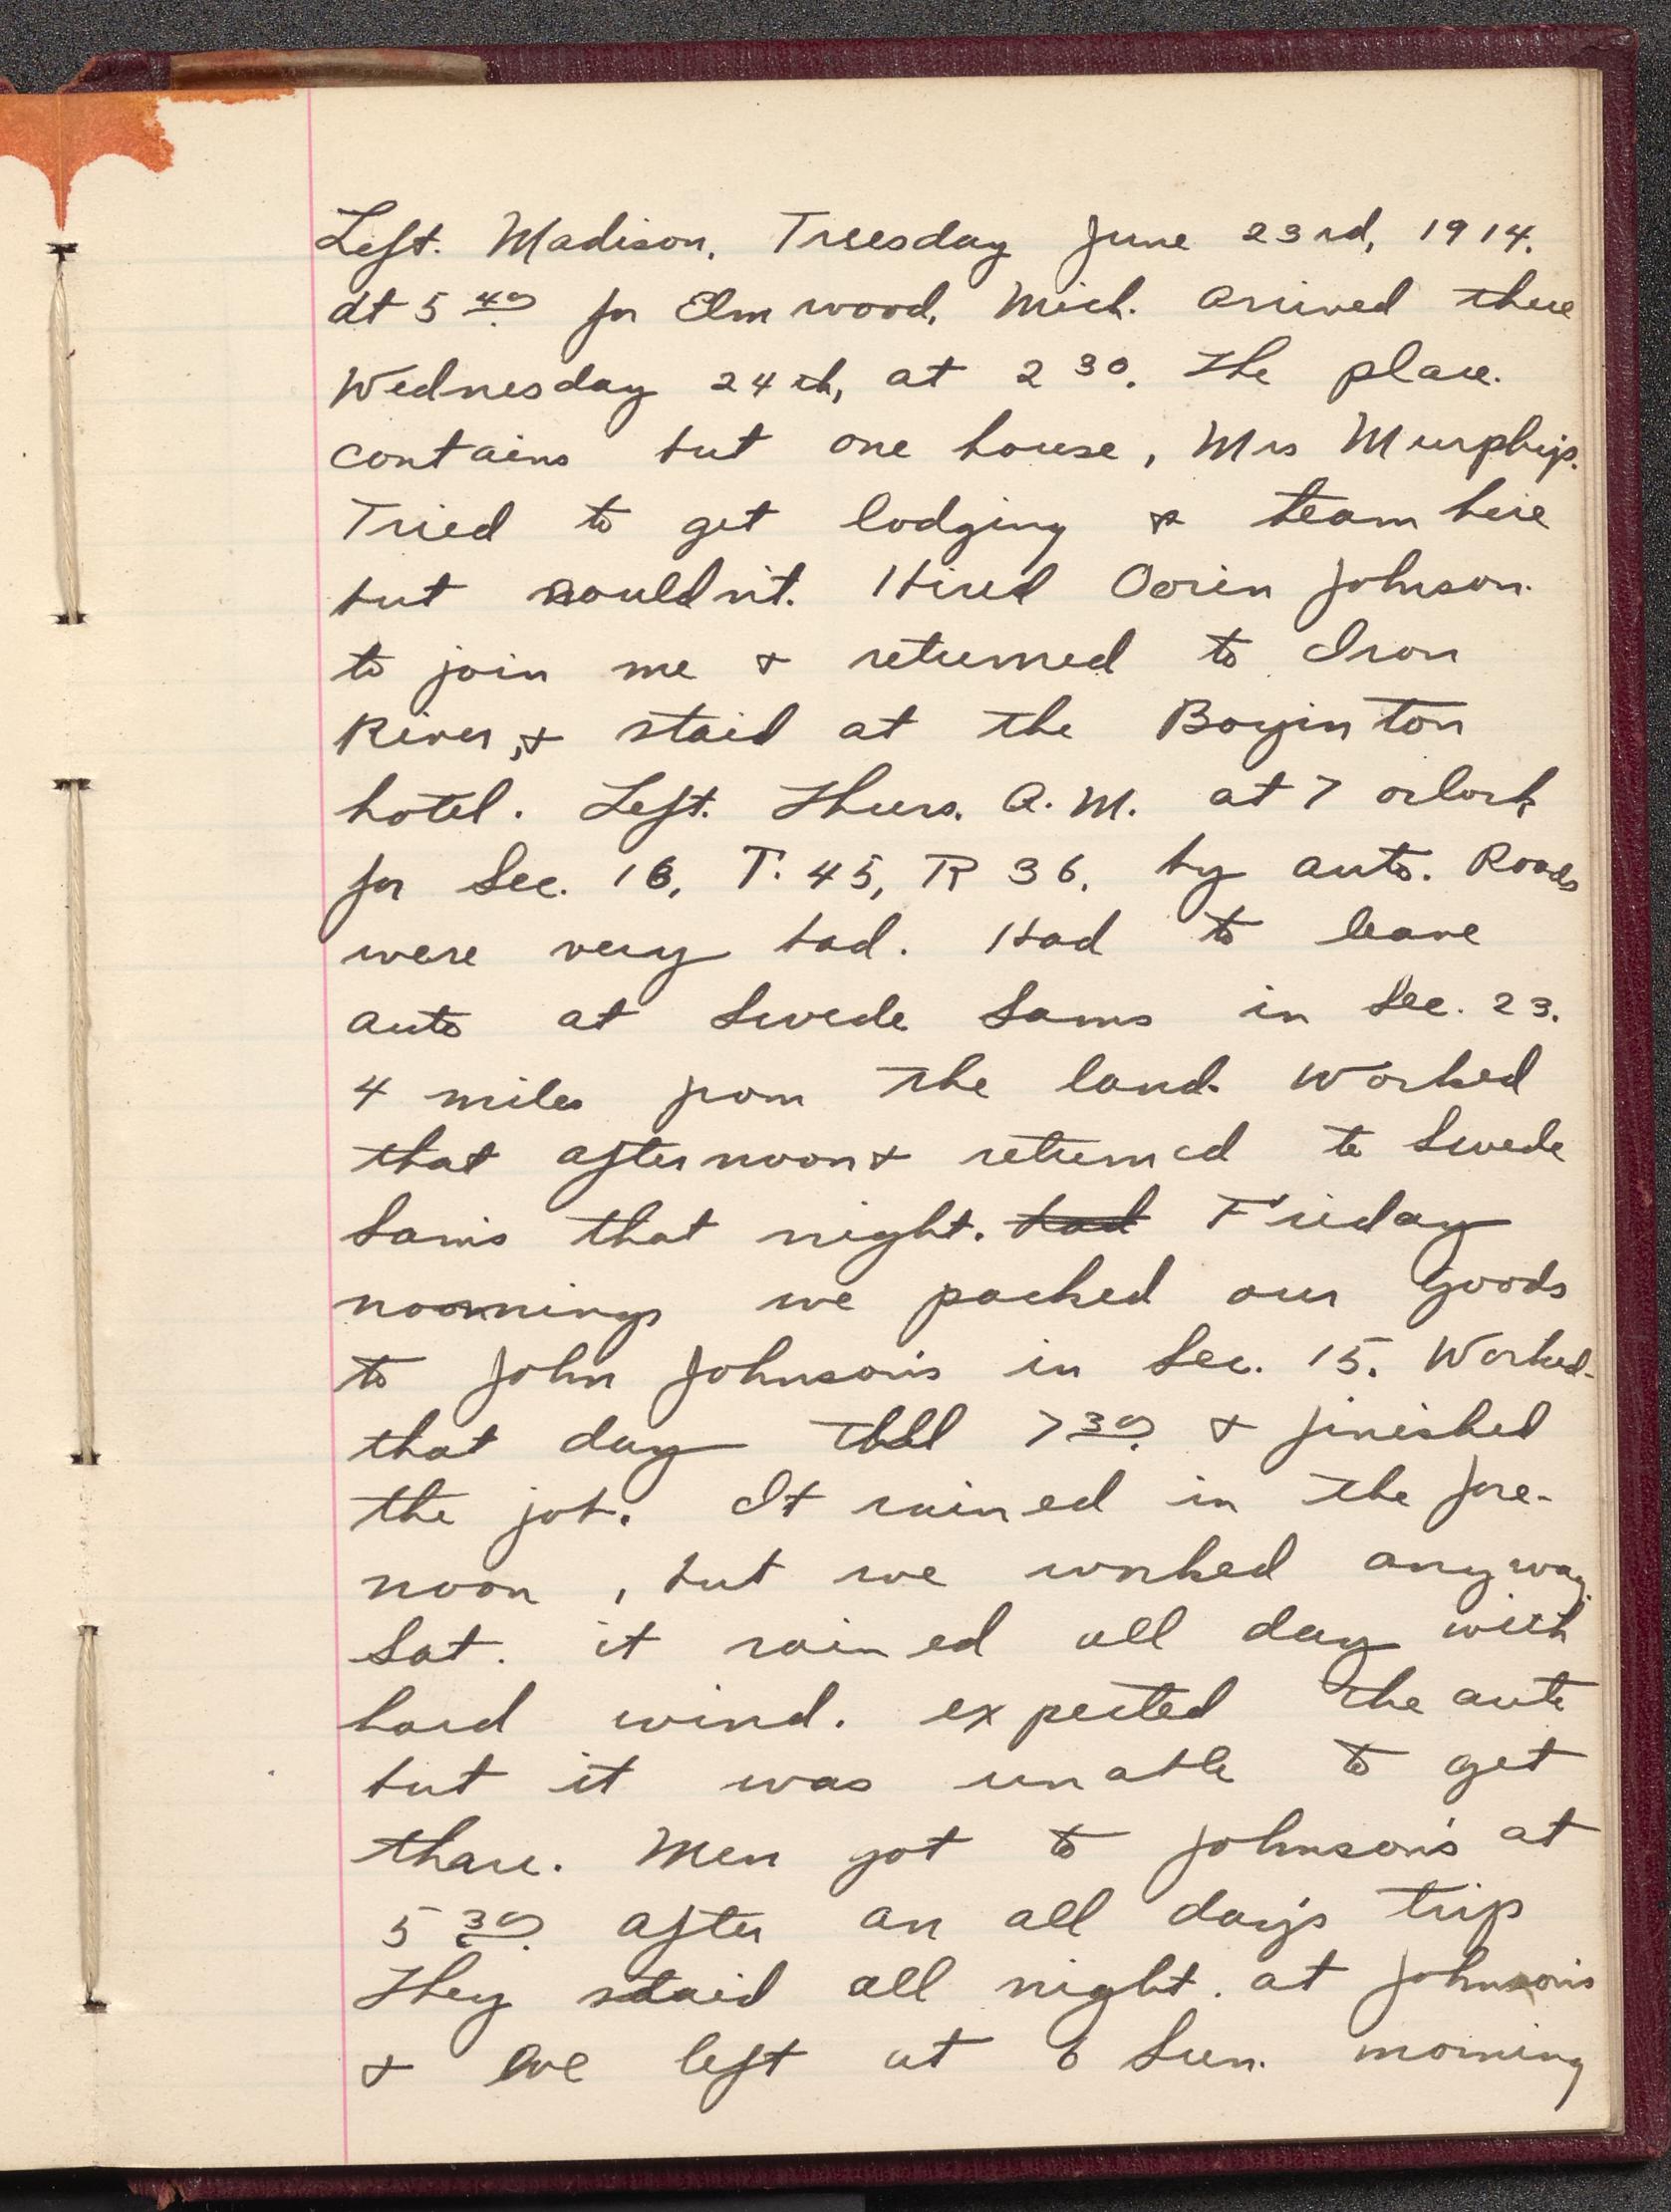 Left. Madison, Tuesday June 23rd, 1914.
at 5 40 for Elmwood, Mich. Arrived there
Wednesday 24th, at 2 30. The place.
contains but one house, Mrs Murphys.
Tried to get lodging & team here
but couldn't. Hired Orrin Johnson.
to join me & returned to Iron
River, & staid at the Boyinton
hotel. Left. Thurs. A.M. at 7 oclock
for Sec. 16, T. 45, R 36, by auto. Roads
were very bad. Had to leave
auto at Swede Sams in Sec. 23.
4 miles from the land. Worked
that afternoon & returned to Swede
Sam's that night. had Friday
moorning we packed our goods
to John Johnson's in Sec. 15. Worked
that day till 7 30 & finished
the job. It rained in the fore-
noon, but we worked anyway.
Sat. it rained all day with
hard wind. expected the auto
but it was unable to get
thare. Men got to Johnson's at
5 30. after an all day's trip
They staid all night. at Johnson's
& we left at 6 Sun. morning